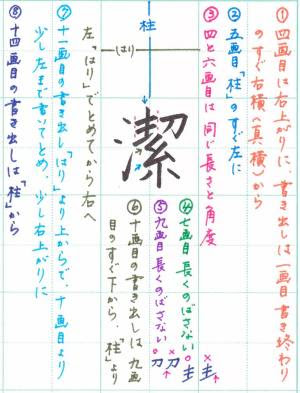 ①四画目は右上がりに、書き出しは一画目書き終わり
のすぐ右横(真横)から
②五画目「柱」のすぐ左に
③四と六画目は同じ長さと角度
柱
はり
潔
④七画目長くのばさない
⑤九画目長くのばさない
⑥十画目の書き出しは九画
目のすぐ下から、「柱」より
左「はり」でとめてから右へ
⑦十一画目の書き出し「はり」より上からで、十画目より
少し左まで書いてとめ、少し右上がりに
⑧十四画目の書き出しは「柱」から